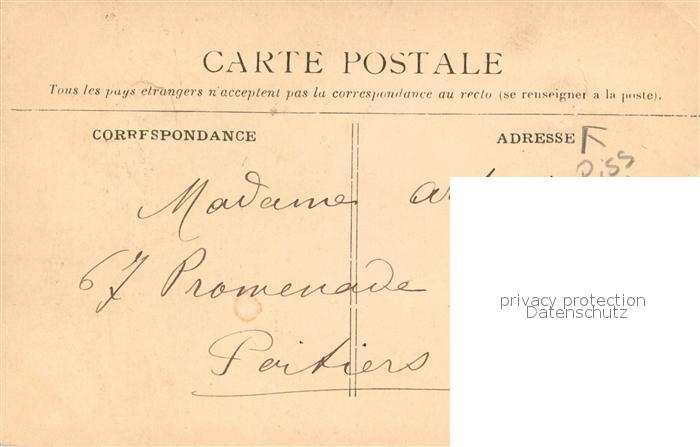 CARTE POSTALE
Tous les pays etrangers n'acceptent pas la correspondance au recto (se renseigner a la poste).
CORRESPONDANCE
ADRESSE
Madame
67 Promenade
Poitiers
privacy protection
Datenschutz